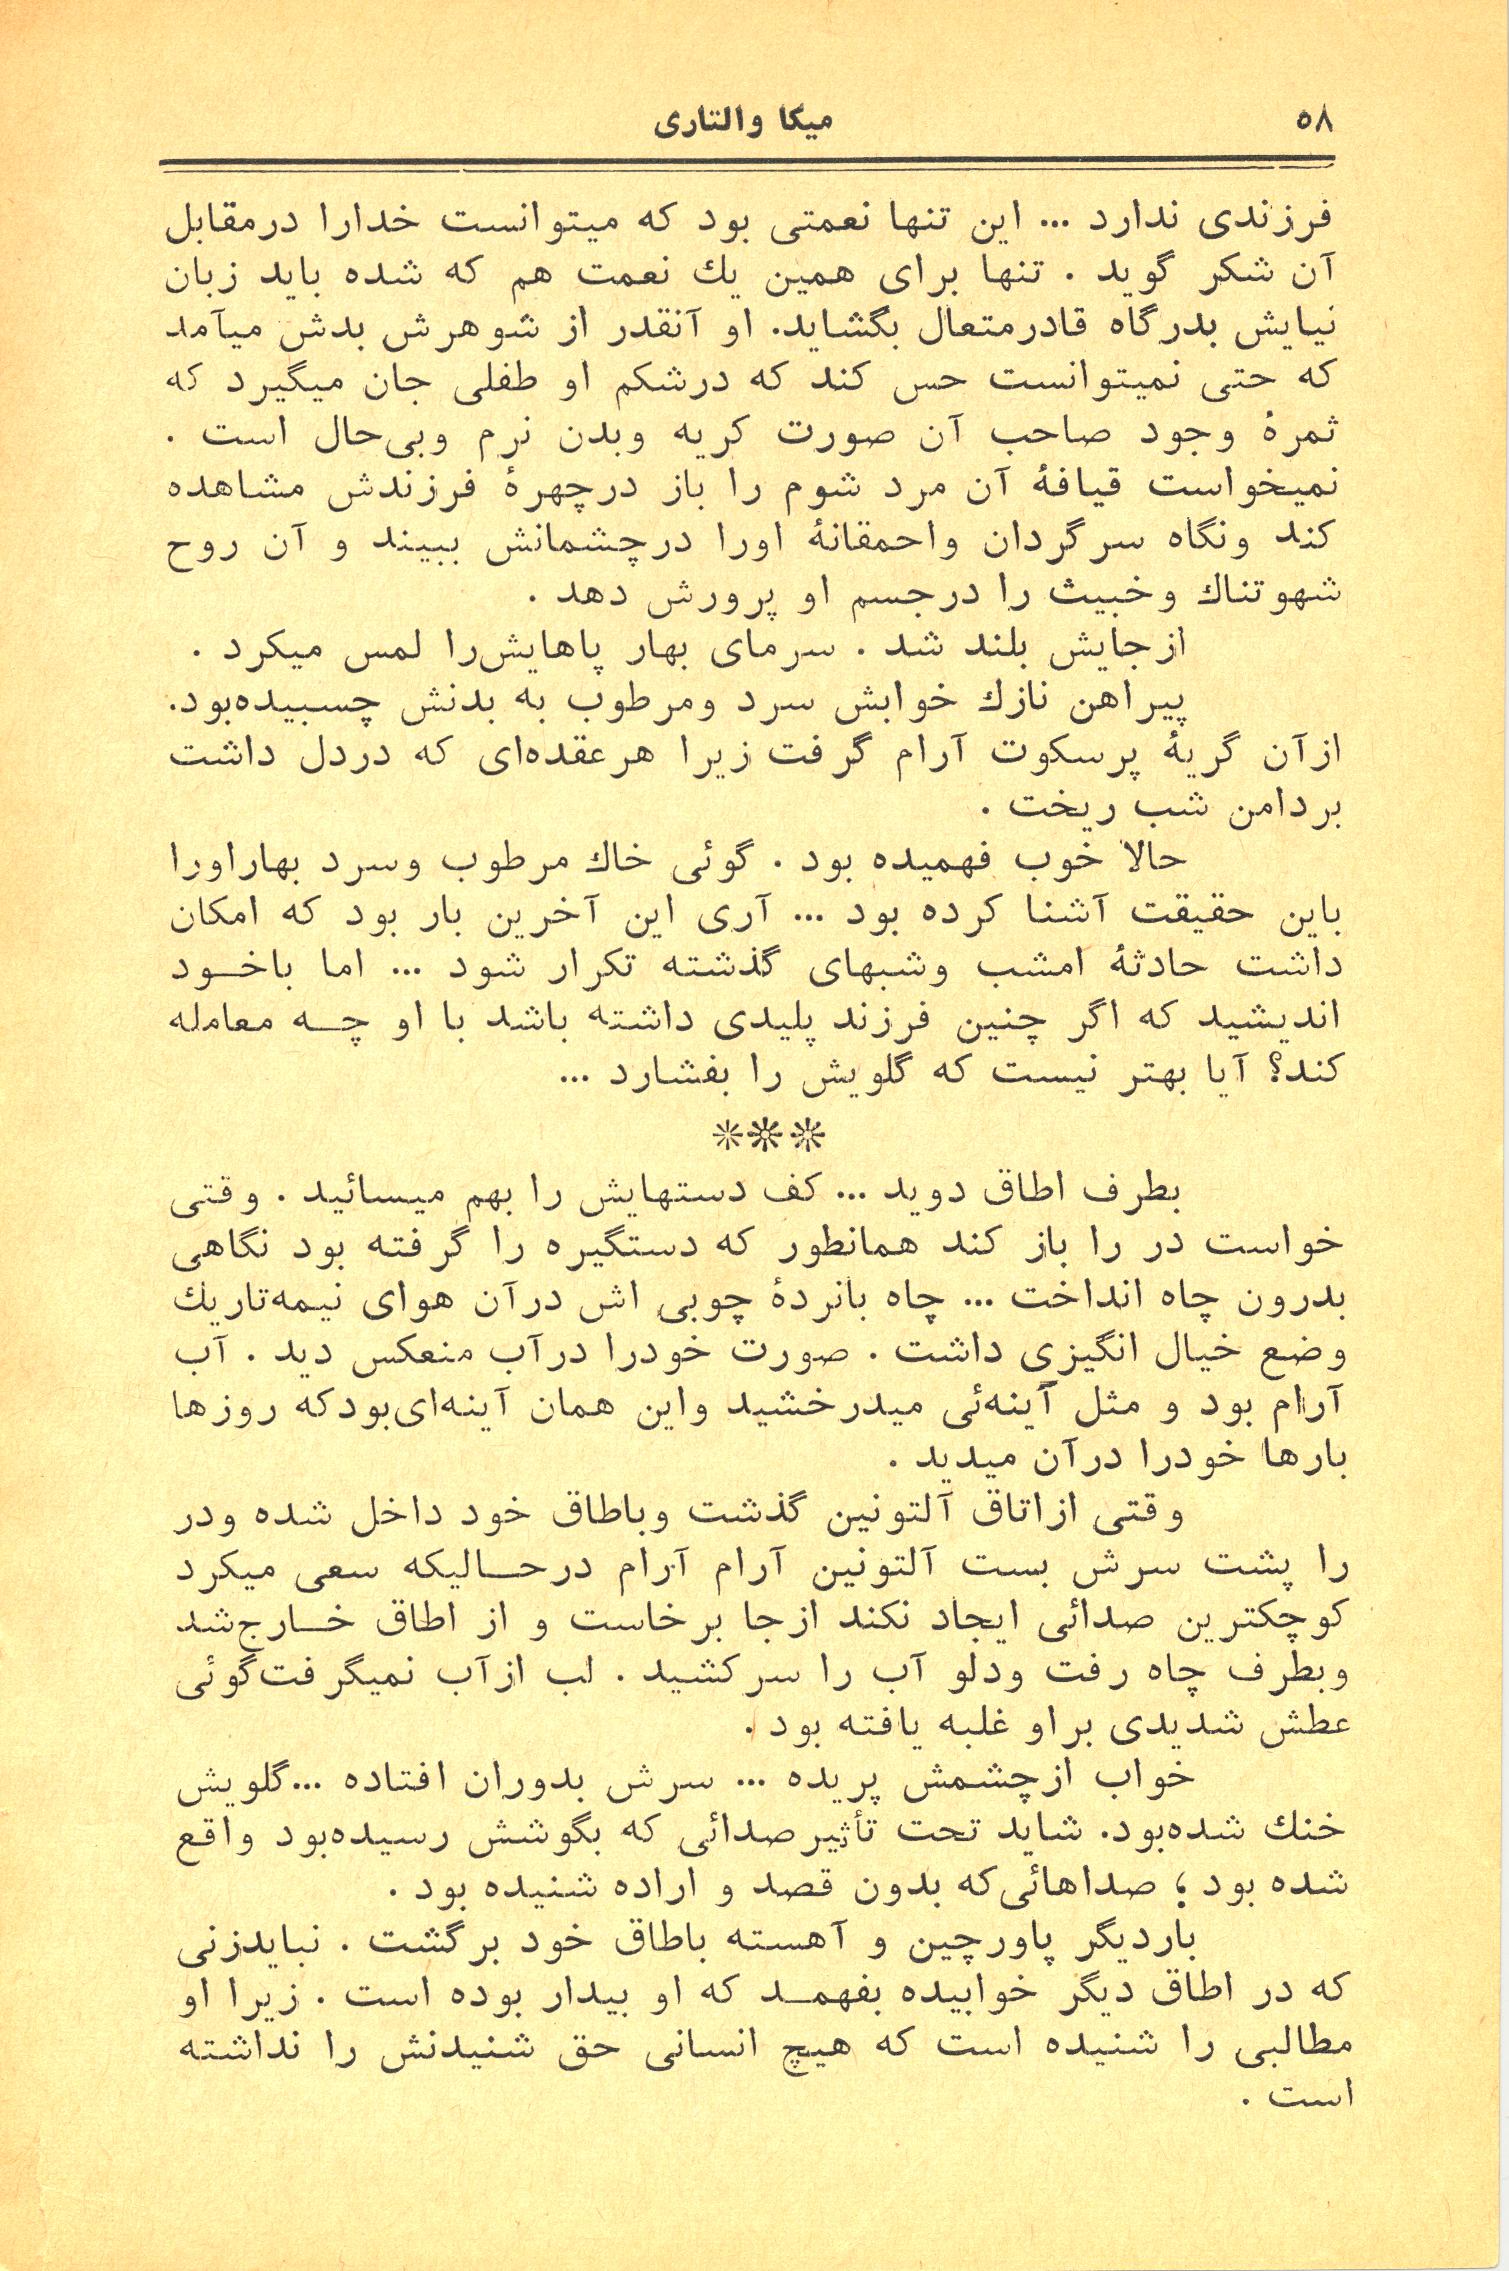 ۵۸
میکا والتاری
فرزندی ندارد ... این تنها نعمتی بود که میتوانست خدارا درمقابل
آن شکر گوید . تنها برای همین یك نعمت هم که شده باید زبان
نیایش بدرگاه قادرمتعال بگشاید. او آنقدر از شوهرش بدش میآمد
که حتی نمیتوانست حس کند که درشکم او طفلی جان میگیرد که
ثمرهٔ وجود صاحب آن صورت کریه وبدن نرم وبی‌حال است .
نمیخواست قیافهٔ آن مرد شوم را باز درچهرهٔ فرزندش مشاهده
کند ونگاه سرگردان واحمقانهٔ اورا درچشمانش ببیند و آن روح
شهوتناك وخبیث را درجسم او پرورش دهد .
ازجایش بلند شد . سرمای بهار پاهایش‌را لمس میکرد .
پیراهن نازك خوابش سرد ومرطوب به بدنش چسبیده‌بود.
ازآن گریهٔ پرسکوت آرام گرفت زیرا هرعقده‌ای که دردل داشت
بردامن شب ریخت .
حالا خوب فهمیده بود . گوئی خاك مرطوب وسرد بهاراورا
باین حقیقت آشنا کرده بود ... آری این آخرین بار بود که امکان
داشت حادثهٔ امشب وشبهای گذشته تکرار شود ... اما باخـود
اندیشید که اگر چنین فرزند پلیدی داشته باشد با او چـه معامله
کند؟ آیا بهتر نیست که گلویش را بفشارد ...
***
بطرف اطاق دوید ... کف دستهایش را بهم میسائید . وقتی
خواست در را باز کند همانطور که دستگیره را گرفته بود نگاهی
بدرون چاه انداخت ... چاه بانردهٔ چوبی اش درآن هوای نیمه‌تاریك
وضع خیال انگیزی داشت . صورت خودرا درآب منعکس دید . آب
آرام بود و مثل آینه‌ئی میدرخشید واین همان آینه‌ای‌بودکه روزها
بارها خودرا درآن میدید .
وقتی ازاتاق آلتونین گذشت وباطاق خود داخل شده ودر
را پشت سرش بست آلتونین آرام آرام درحـالیکه سعی میکرد
کوچکترین صدائی ایجاد نکند ازجا برخاست و از اطاق خـارج‌شد
وبطرف چاه رفت ودلو آب را سرکشید . لب ازآب نمیگرفت‌گوئی
عطش شدیدی براو غلبه یافته بود .
خواب ازچشمش پریده ... سرش بدوران افتاده ...گلویش
خنك شده‌بود. شاید تحت تأثیرصدائی که بگوشش رسیده‌بود واقع
شده بود ؛ صداهائی‌که بدون قصد و اراده شنیده بود .
باردیگر پاورچین و آهسته باطاق خود برگشت . نبایدزنی
که در اطاق دیگر خوابیده بفهمـد که او بیدار بوده است . زیرا او
مطالبی را شنیده است که هیچ انسانی حق شنیدنش را نداشته
است .